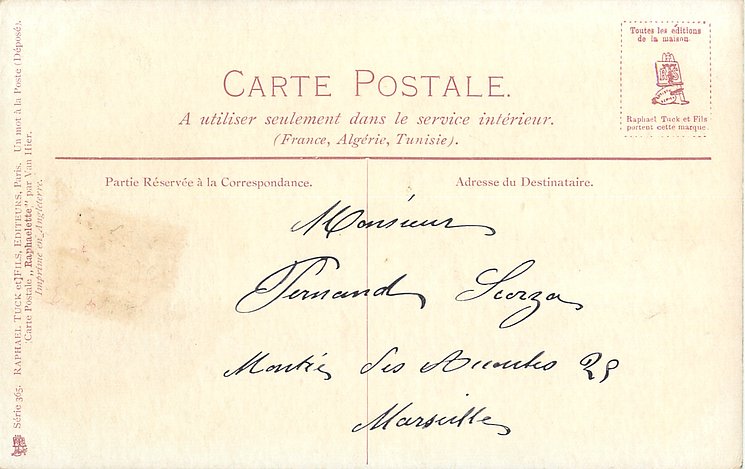 CARTE POSTALE.
A utiliser seulement dans le service intérieur.
(France, Algérie, Tunisie).
Toutes les éditions
de la maison
Raphael Tuck et Fils
portent cette marque.
Partie Réservée à la Correspondance.
Adresse du Destinataire.
Monsieur
Fernand Scorza
Montée des Accoules 25
Marseille
Série 365. RAPHAEL TUCK et FILS, EDITEURS, Paris. Un mot à la Poste (Déposé).
Carte Postale „Raphaelette" par Van Hier.
Imprimé en Angleterre.